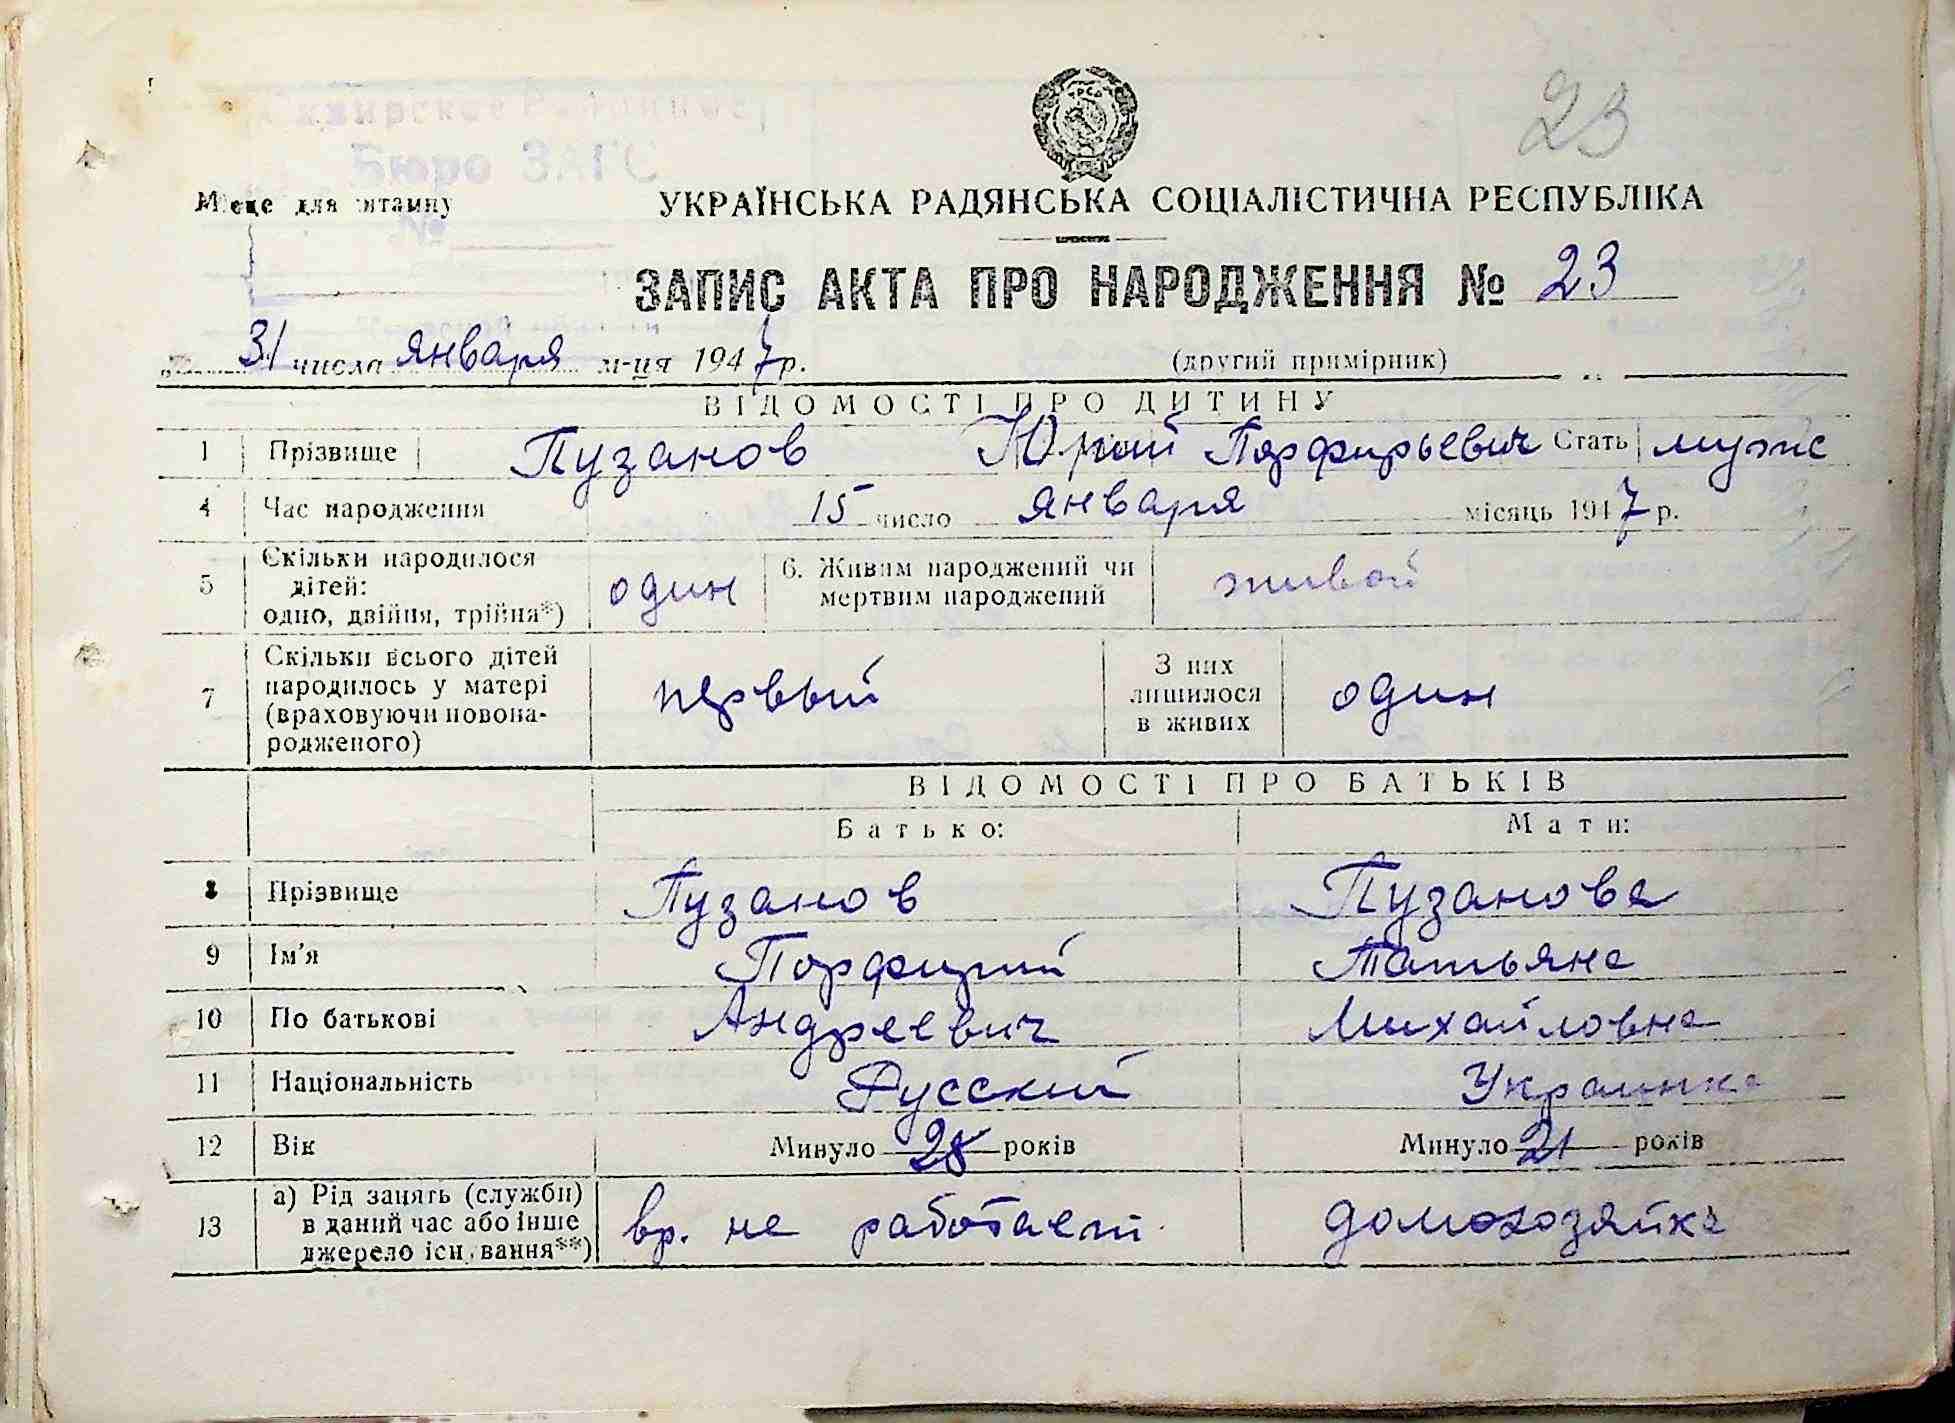 23
Бюро ЗАГС
№
Місце для штампу
УКРАЇНСЬКА РАДЯНСЬКА СОЦІАЛІСТИЧНА РЕСПУБЛІКА
ЗАПИС АКТА ПРО НАРОДЖЕННЯ № 23
31 числа января м-ця 1947 р. (другий примірник)
ВІДОМОСТІ ПРО ДИТИНУ
1 Прізвище Пузанов Юрий Порфирьевич Стать муж
4 Час народження 15 число января місяць 1947 р.
5 Скільки народилося дітей: одно, двійня, трійня*) один 6. Живим народжений чи мертвим народжений живой
7 Скільки всього дітей народилось у матері (враховуючи новонародженого) первый З них лишилося в живих один
ВІДОМОСТІ ПРО БАТЬКІВ
Батько: Мати:
8 Прізвище Пузанов Пузанова
9 Ім'я Порфирий Татьяна
10 По батькові Андреевич Михайловна
11 Національність Русский Украинка
12 Вік Минуло 28 років Минуло 21 років
13 а) Рід занять (служби) в даний час або інше джерело існування**) вр. не работает домохозяйка